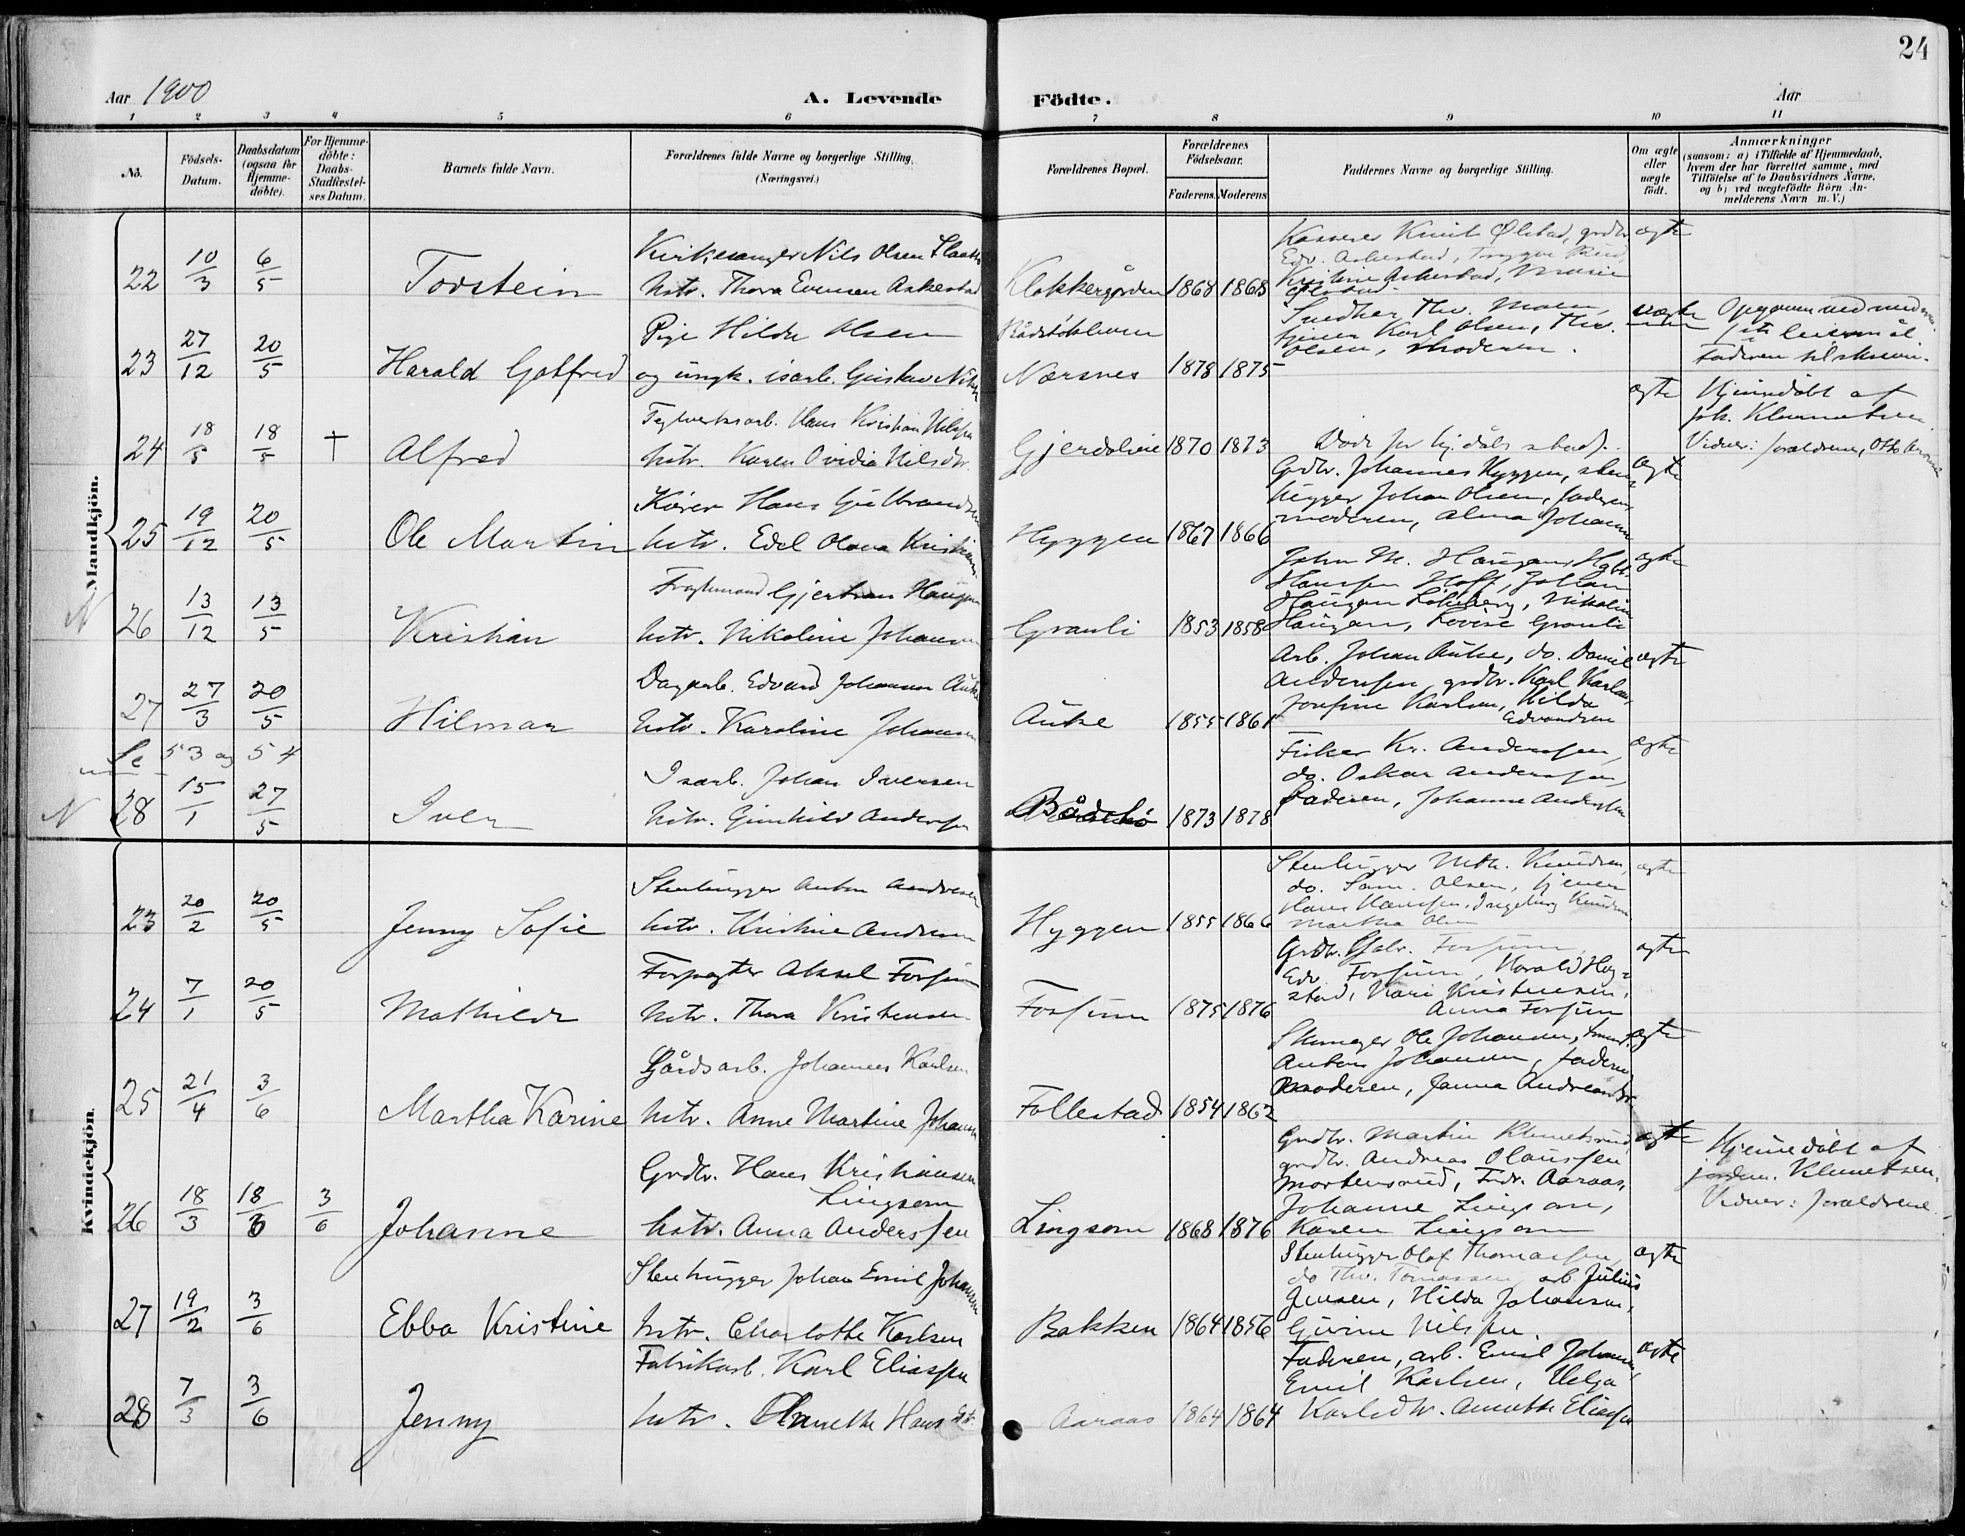 24
Aar 1900
A. Levende Födte.
Aar
1 2 3 4 5 6 7 8 9 10 11
No.
Födsels-Datum.
Daabsdatum (ogsaa for Hjemme-döbte).
For Hjemme-döbte: Daabs-Stadfæstel-ses Datum.
Barnets fulde Navn.
Forældrenes fulde Navne og borgerlige Stilling. (Næringsvei.)
Forældrenes Bopæl.
Forældrenes Födselsaar.
Faderens. Moderens.
Faddernes Navne og borgerlige Stilling.
Om ægte eller uægte födt.
Anmærkninger
(saasom: a) i Tilfælde af Hjemmedaab,
hvem der har forrettet samme, med
Tilföielse af to Daabsvidners Navne,
og b) ved uægtefödte Börn An-
melderens Navn m. V.)
Mandkjön.
22 10/3 6/5 Torstein
Kirkesanger Nils Olsen
Hstr. Thora Askestad
Klokkergården 1868 1868
Kasserer Knut Ølstad, grdbr.
Edv. Askestad, Trygve
Kristine Askestad,
ægte
23 27/12 20/5 Harald Gotfred
Pige Hilda Olsen
og ungk. isarb. Gustav
Nærsnes 1878 1875
Thv.
tjener Karl Olsen, Thv.
Olsen, Moderen.
uægte
24 18/5 18/5 † Alfred
Teglverksarb. Hans Kristian Nilssen
Hstr. Karen Ovidia Nilsdtr.
Gjerdalen 1870 1873
ægte
Hjemmedöbt af
Joh. Klemmetsen
Vidner: forældrene,
25 19/12 20/5 Ole Martin
Kjörer Hans Gulbrandsen
Hstr. Edel Olava
Hyggen 1867 1866
Grdbr. Johannes Hyggen, sten-
hugger Johan Olsen, faderen,
moderen, Alma
ægte
N 26 13/12 13/5 Kristian
Fragtemand Gjertsen Haugen
Hstr. Nikoline Johansen
Granli 1853 1858
John M. Haugen,
Hanssen Hoff, Johan
Haugen, Nikoline
Haugen, Lovise Granli
ægte
27 27/3 20/5 Hilmar
Dagarb. Edvard Johansen Auke
Hstr. Karoline Johansen
Auke 1855 1861
Arb. Johan Auke, do. Daniel
Anderssen, grdbr. Karl Karlsen,
Josefine Karlsen, Hilda
Edvardsen
ægte
Se 53 og 54
N 28 15/1 27/5 Iver
Isarb. Johan Iversen
Hstr. Gunhild Anderssen
Bådstö 1873 1878
Fisker Kr. Anderssen,
do. Oskar Anderssen,
Faderen, Johanne Anderssen
ægte
Kvindekjön.
23 20/2 20/5 Jenny Sofie
Stenhugger Anton Andresen
Hstr. Kristine Andresen
Hyggen 1855 1866
Stenhugger Mth. Knudsen,
do. Sam. Olsen, tjener
Hans Hanssen, Ingeborg Knudsen
Martha Olsen
ægte
24 7/1 20/5 Mathilde
Forpagter Aksel Forsum
Hstr. Thora Kristensen
Forsum 1875 1876
Grdbr. Forsum,
Edv. Forsum, Harald Hog-
stad, Kari Kristensen,
Anna Forsum
ægte
25 21/4 3/6 Martha Karine
Gårdsarb. Johannes Karlsen
Hstr. Anne Martine Johansen
Follestad 1854 1862
Skomager Ole Johansen,
Anton Johansen, faderen
Moderen, Janna Andreasdtr.
ægte
26 18/3 18/3 3/6 Johanne
Grdbr. Hans Kristiansen
Lingsom
Hstr. Anna Anderssen
Lingsom 1868 1876
Grdbr. Martin Klemetsrud,
grdbr. Andreas Olaussen
Mortensrud, Fredr. Aaraas,
Johanne Lingsom,
Karen Lingsom
ægte
Hjemmedöbt af
jordm. Klemetsen.
Vidner: forældrene.
27 19/2 3/6 Ebba Kristine
Stenhugger Johan Emil Johansen
Hstr. Charlotte Karlsen
Bakken 1864 1856
Stenhugger Olaf Thomassen,
do Thv. Tomassen, arb. Julius
Jensen, Hilda Johansen,
Gurine Nilssen.
ægte
28 7/3 3/6 Jenny
Fabrikarb. Karl Eliassen
Hstr. Annette
Aaraas 1864 1864
Faderen, arb. Emil Johansen,
Emil Karlsen, Helga
Karlsdtr. Annette Eliassen
ægte